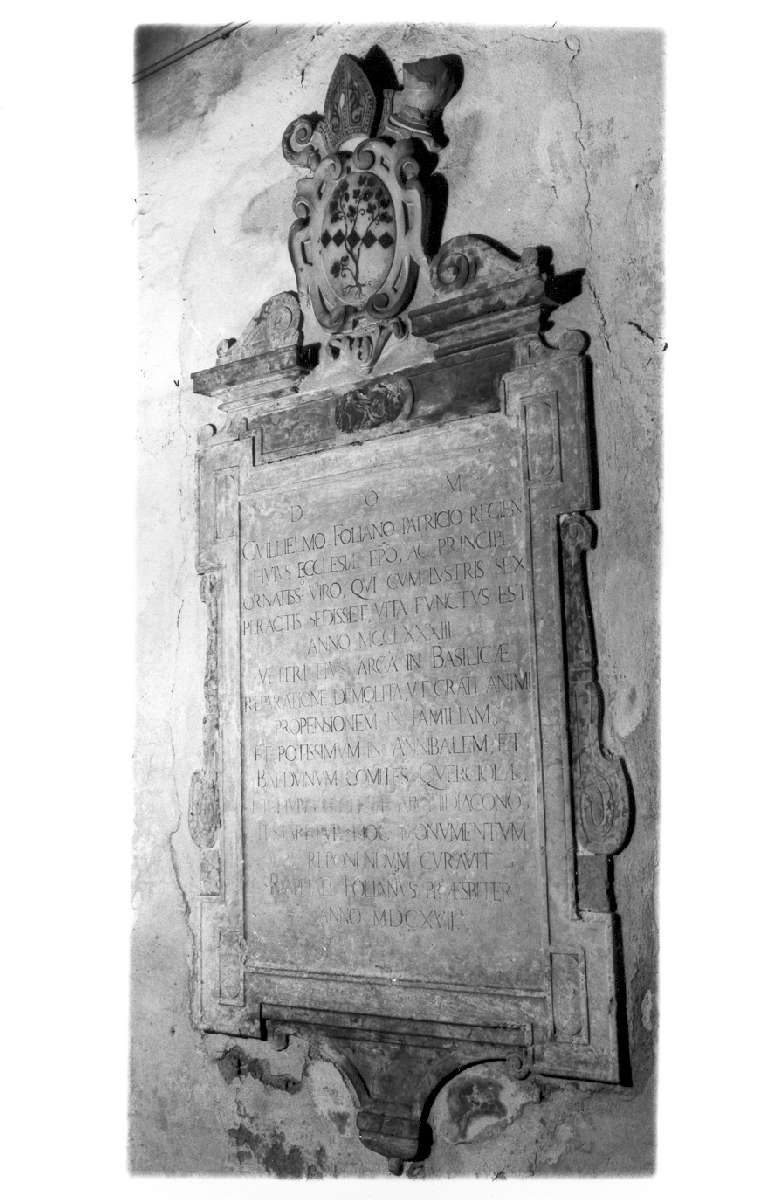 D O M
GVLLIELMO FOLIANO PATRICIO REGIEN
HVIVS ECCLESIÆ EPO, AC PRINCIPI
ORNATISS VIRO, QVI CVM LVSTRIS SEX
PERACTIS SEDISSET, VITA FVNCTVS EST
ANNO MCCLXXXIII
VETERI EIVS ARCA IN BASILICÆ
REPARATIONE DEMOLITA, VT GRATI ANIMI
PROPENSIONEM IN FAMILIAM,
ET POTISSIMVM IN ANNIBALEM, ET
BALDVINVM COMITES QVERCIOLÆ,
ET HVIVS ARCHIDIACONO,
HOC MONVMENTVM
REPONENDVM CVRAVIT
RAPHAEL FOLIANVS PRÆSBITER
ANNO